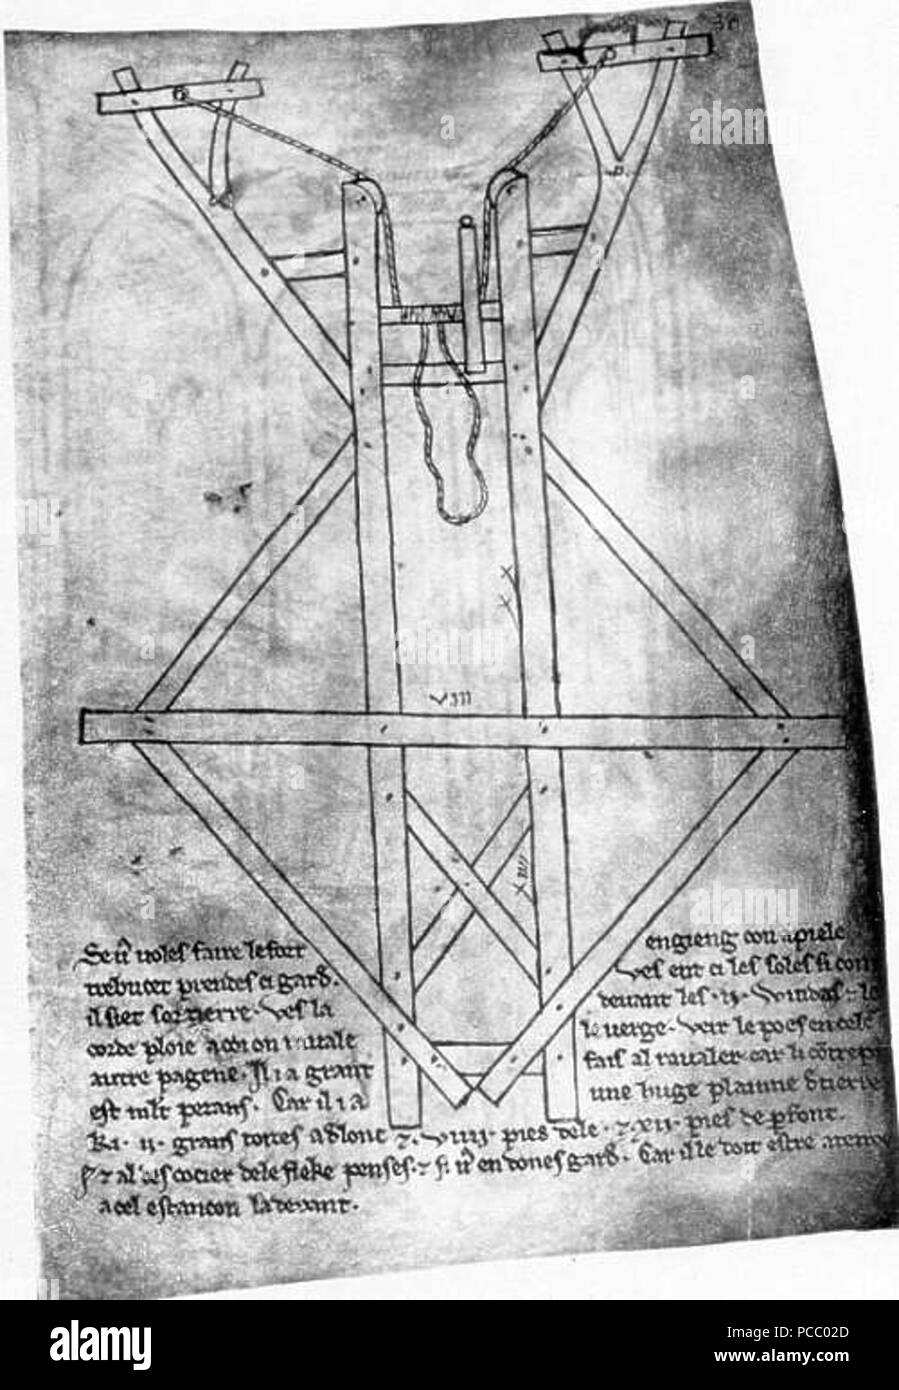 Se u noles faire le fort engieng con apiele
trebucet prendes ci gard. ves ent ci les soles si com
il siet sor tierre. ves la devant les .ij. windas ⁊ le
corde ploie a coi on ravale le verge. veir le poes en cele
autre pagene. Il i a grant fais al ravaler car li cõtrep
est mlt pezans. Car il i a une huge plainne d tierre
Ki .ij. grans toizes a d lonc ⁊ .viiij. pies de le ⁊ .xij. pies de pfont.
⁊ al descocier de le fleke penses ⁊ si u en dones gard. Car il le doit estre atenu
a cel estancon la devant.
alamy
a
Image ID: PCC02D
www.alamy.com